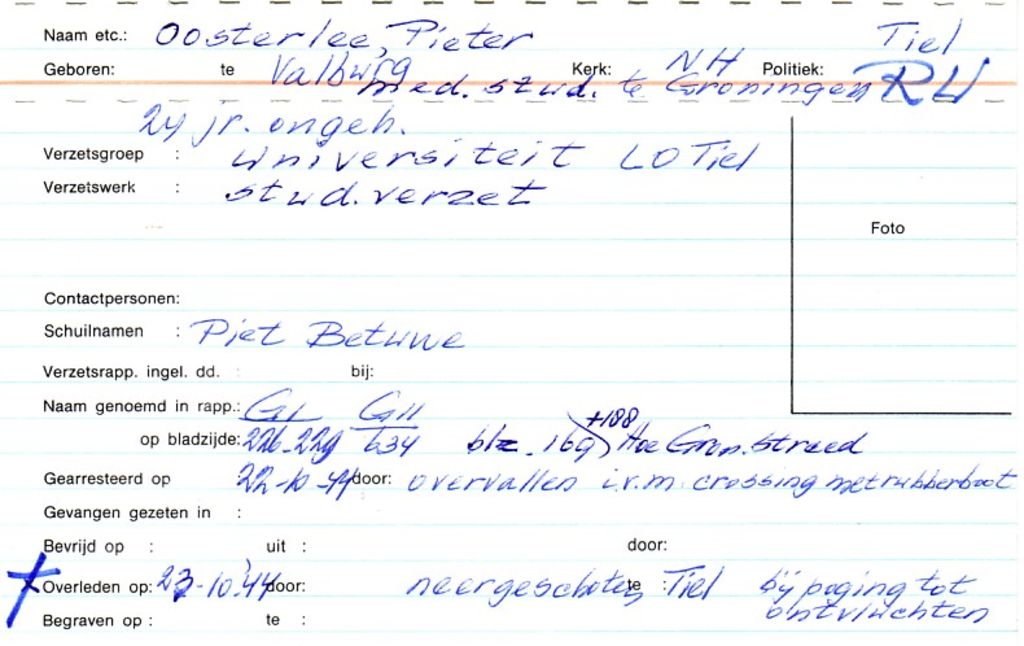 Naam etc.: Oosterlee, Pieter Tiel
Geboren: te Valburg Kerk: NH Politiek: RW
med. stud. te Groningen
24 jr. ongeh.
Verzetsgroep : Universiteit LO Tiel
Verzetswerk : stud. verzet
Foto
Contactpersonen:
Schuilnamen : Piet Betuwe
Verzetsrapp. ingel. dd. : bij:
Naam genoemd in rapp.: GL GII
op bladzijde: 226-229 634 blz. 169 +188 Hoe Gron. streed
Gearresteerd op 22-10-44 door: overvallen i.v.m. crossing met rubberboot
Gevangen gezeten in :
Bevrijd op : uit : door:
Overleden op: 23-10-'44 door: neergeschoten te : Tiel bij poging tot
ontvluchten
Begraven op : te :